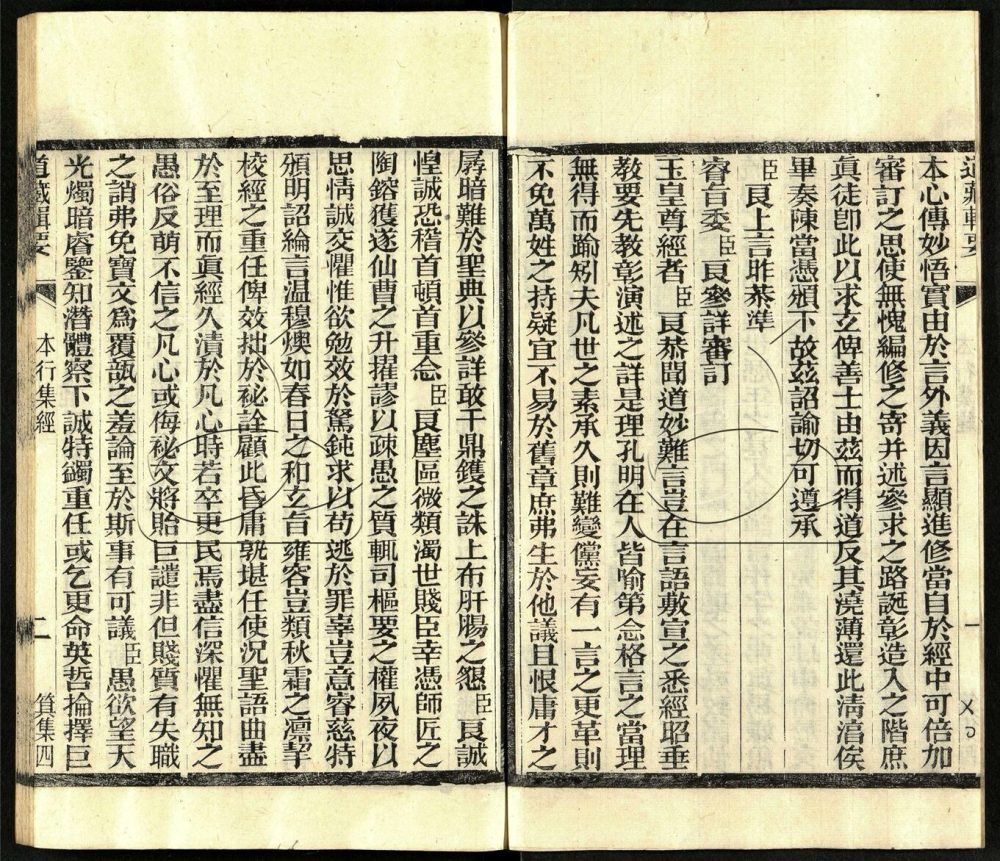 道藏輯要
本心傳妙悟實由於言外義因言顯進修當自於經中可倍加
審訂之思使無愧編修之寄并述參求之路誕彰造入之階庶
眞徒卽此以求玄俾善士由茲而得道反其澆薄還此清淳俟
畢奏陳當懸頒下故茲詔諭切可遵承
臣良上言昨恭準
睿旨委臣良參詳審訂
玉皇尊經者臣良恭聞道妙難言豈在言語敷宣之悉經昭垂
教要先教彰演述之詳是理孔明在人皆喻第念格言之當理
無得而踰矧夫凡世之素承久則難變儻妄有一言之更革則
不免萬姓之持疑宜不易於舊章庶弗生於他議且恨庸才之
孱暗難於聖典以參詳敢干鼎鑊之誅上布肝腸之懇臣良誠
惶誠恐稽首頓首重念臣良塵區微類濁世賤臣幸憑師匠之
陶鎔獲遂仙曹之升擢謬以疎愚之質輒司樞要之權夙夜以
思情誠交懼惟欲勉效於駑鈍求以苟逃於罪辜豈意容慈特
頒明詔綸言温穆燠如春日之和玄旨雍容豈類秋霜之凛挈
校經之重任俾效拙於祕詮顧此昏庸孰堪任使況聖語曲盡
於至理而眞經久漬於凡心時若卒更民焉盡信深懼無知之
愚俗反萌不信之凡心或侮祕文將貽巨譴非但賤質有失職
之誚弗免寶文爲覆瓿之羞論至於斯事有可議臣愚欲望天
光燭暗睿鑒知潛體察下誠特蠲重任或乞更命英哲掄擇巨
道藏輯要
本行集經
二
箕集四